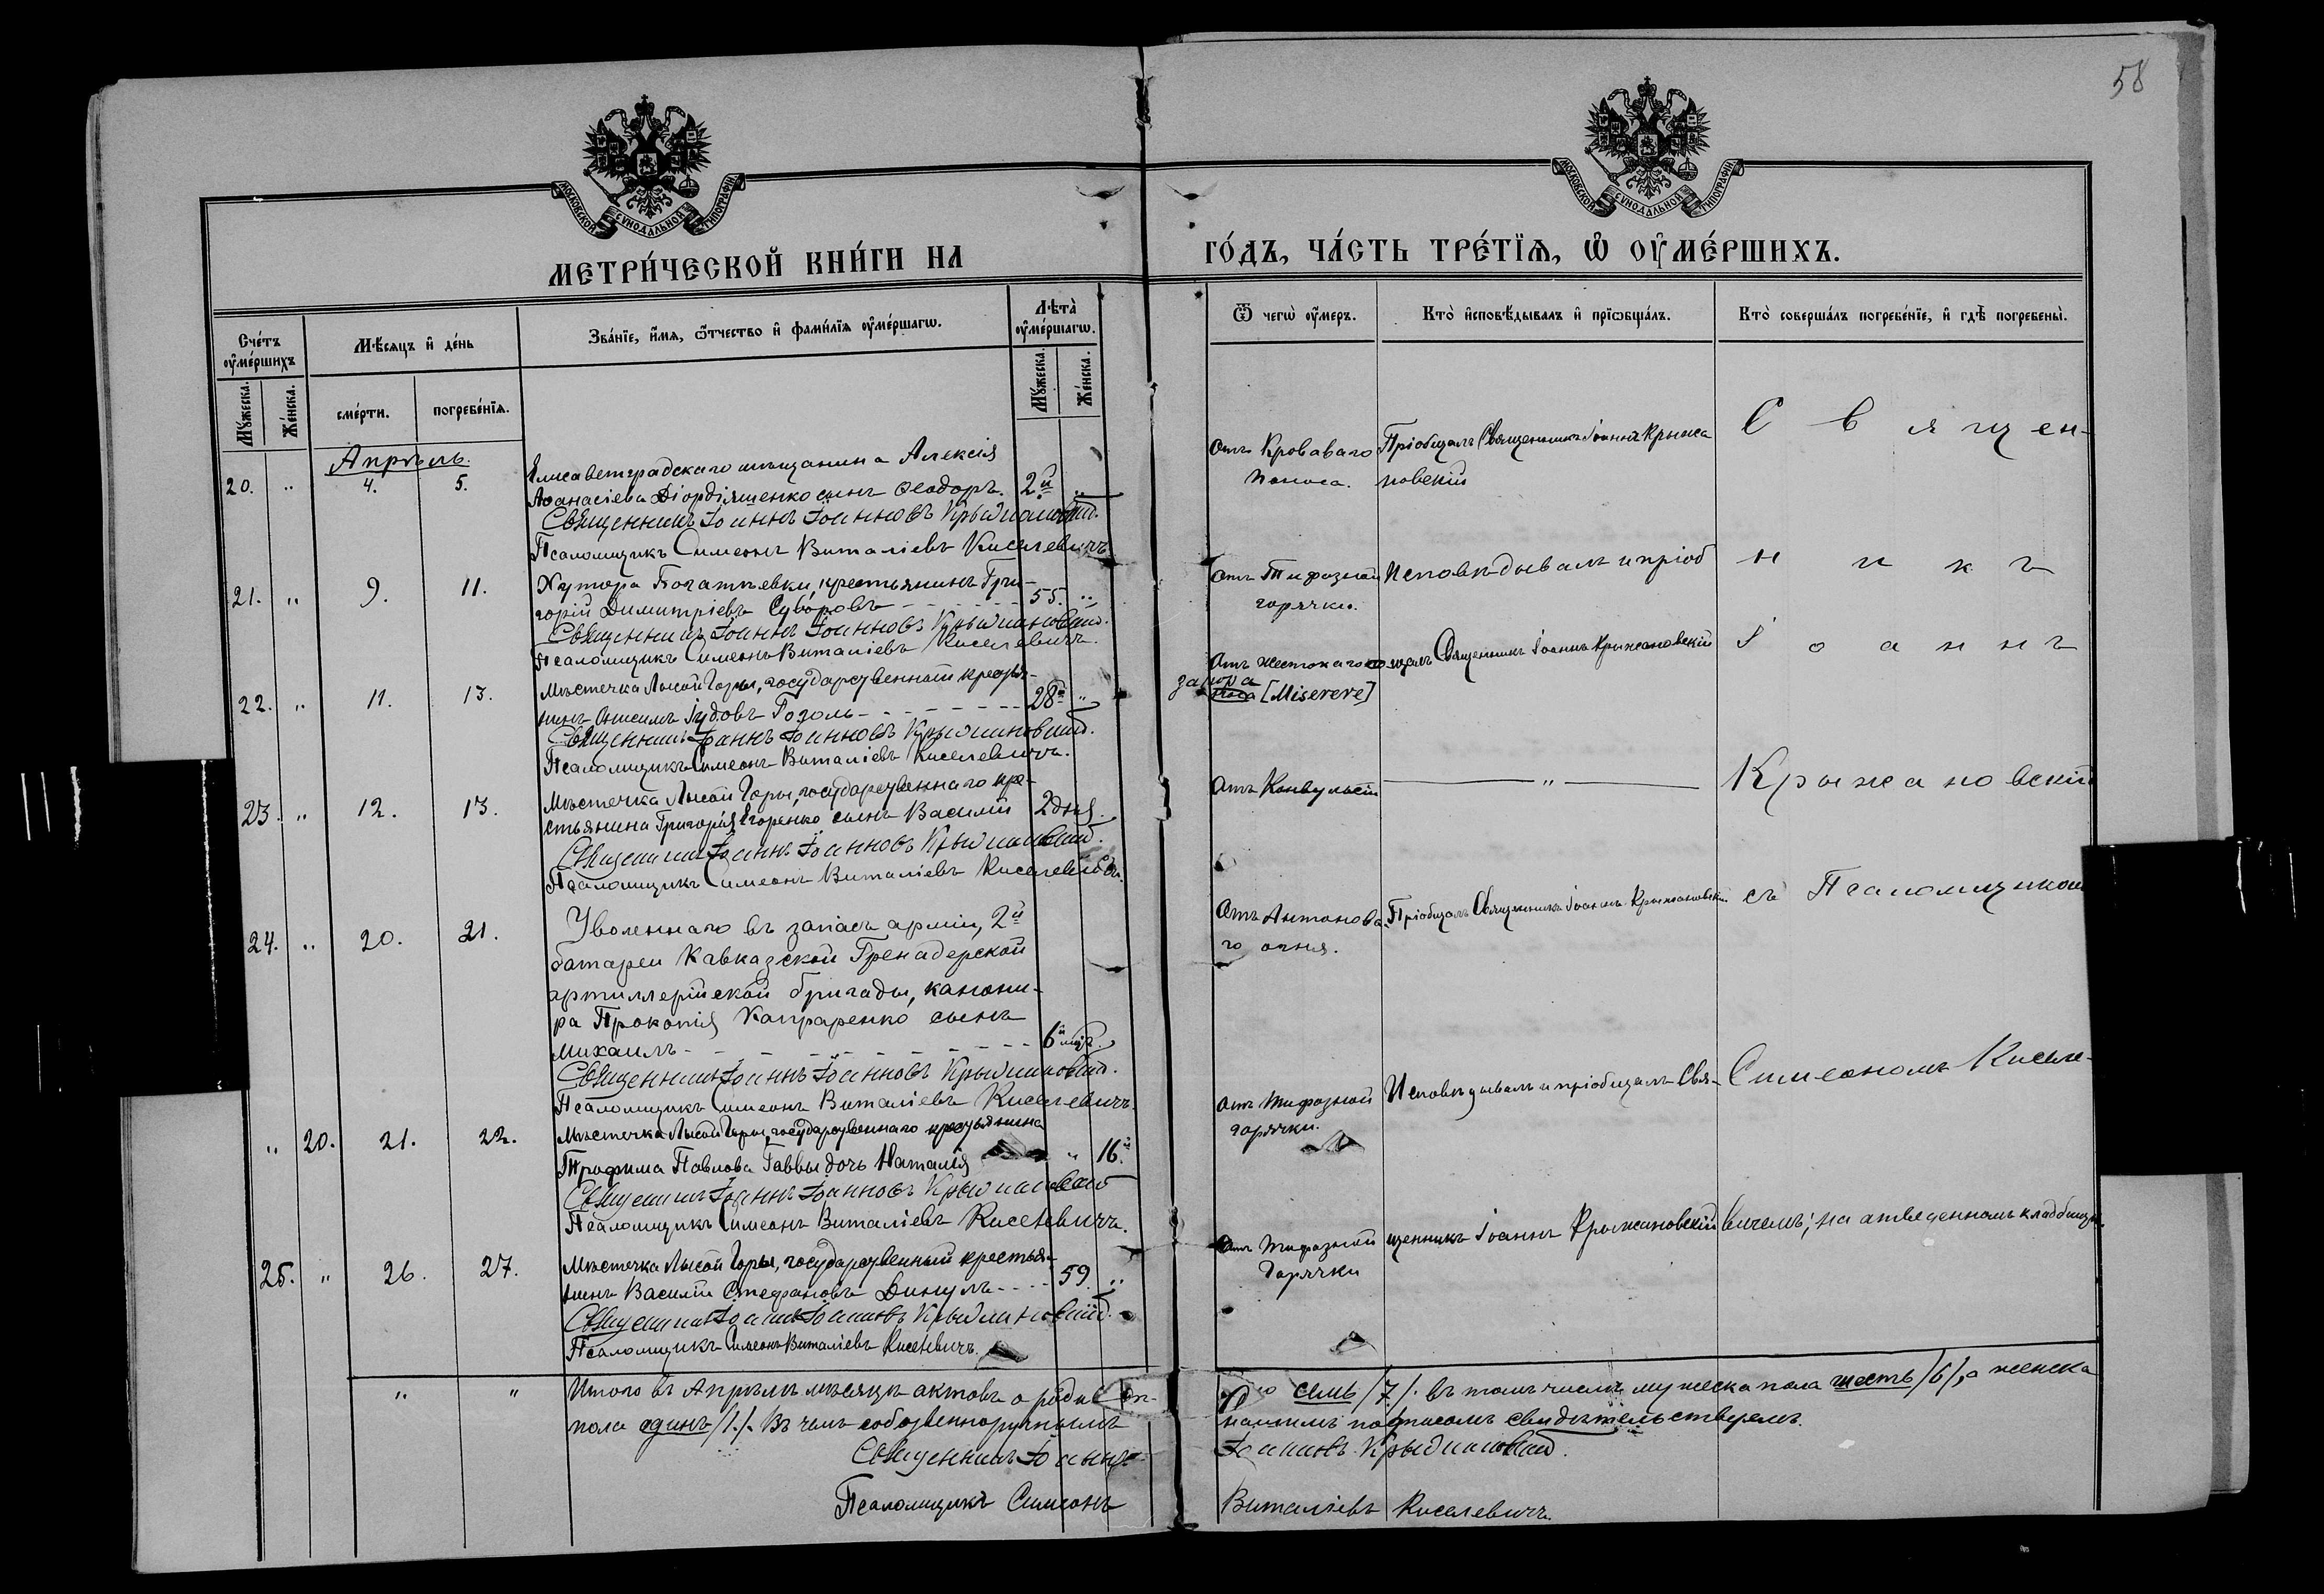 58
МОСКОВСКОЙ СѴНОДАЛЬНОЙ ТИПОГРАФІИ
МОСКОВСКОЙ СѴНОДАЛЬНОЙ ТИПОГРАФІИ
МЕТРИ́ЧЕСКОЙ КНИ́ГИ НА
ГО́ДЪ, ЧА́СТЬ ТРЕ́ТІѦ, Ѽ ОУ҆МЕ́РШИХЪ.
Сче́тъ оу҆ме́ршихъ
Мѣ́сяцъ и҆ де́нь
Зва́нїе, и҆́мѧ, ѻ҆́тчество и҆ фами́лїѧ оу҆ме́ршагѡ.
Лѣта̀ оу҆ме́ршагѡ.
Мꙋ́жеска.
Же́нска.
сме́рти.
погребе́нїѧ.
Мꙋ́жеска.
Же́нска.
Ѿ чегѡ̀ оу҆́меръ.
Кто̀ и҆сповѣ́дывалъ и҆ прїѡбща́лъ.
Кто̀ соверша́лъ погребе́нїе, и҆ гдѣ̀ погребены̀.
Апрѣль.
20. „ 4. 5.
Елисаветградскаго мѣщанина Алексія
Аѳанасіева Діордіященко сынъ Ѳеодоръ. 2й „
Священникъ Іоаннъ Іоанновъ Крыжановскій.
Псаломщикъ Симеонъ Виталіевъ Киселевичъ
Отъ Кроваваго
поноса.
Пріобщалъ Священникъ Іоаннъ Крыжа
новскій
Священ-
21. „ 9. 11.
Хутора Богатѣевки, крестьянинъ Гри-
горій Димитріевъ Суворовъ 55. „
Священникъ Іоаннъ Іоанновъ Крыжановскій.
Псаломщикъ Симеонъ Виталіевъ Киселевичъ.
Отъ Тифозной
горячки.
Исповѣдывалъ и пріоб
никъ
22. „ 11. 13.
Мѣстечка Лысой Горы, государственный крестья-
нинъ Онисимъ Іудовъ Гоголь 28й „
Священникъ Іоаннъ Іоанновъ Крыжановскій.
Псаломщикъ Симеонъ Виталіевъ Киселевичъ.
Отъ жестокаго
запора
[Miserere]
щалъ Священникъ Іоаннъ Крыжановскій
Іоаннъ
23. „ 12. 13.
Мѣстечка Лысой Горы, государственнаго кре-
стьянина Григорія Егоренко сынъ Василій 2 дня.
Священникъ Іоаннъ Іоанновъ Крыжановскій.
Псаломщикъ Симеонъ Виталіевъ Киселевичъ.
Отъ Конвульсій
„
Крыжановскій
24. „ 20. 21.
Уволеннаго въ запасъ арміи, 2й
батареи Кавказской Гренадерской
артиллерійской бригады, канони-
ра Прокопія Капраренко сынъ
Михаилъ 6й мѣс.
Священникъ Іоаннъ Іоанновъ Крыжановскій.
Псаломщикъ Симеонъ Виталіевъ Киселевичъ.
Отъ Антонова-
го огня.
Пріобщалъ Священникъ Іоаннъ Крыжановскій.
съ Псаломщиком
„ 20. 21. 22.
Мѣстечка Лысой Горы, государственнаго крестьянина
Трофима Павлова Гаввы дочь Наталія „ 16й
Священникъ Іоаннъ Іоанновъ Крыжановскій
Псаломщикъ Симеонъ Виталіевъ Киселевичъ.
Отъ тифозной
горячки.
Исповѣдывалъ и пріобщалъ Свя-
Симеономъ Киселе-
25. „ 26. 27.
Мѣстечка Лысой Горы, государственный крестья-
нинъ Василій Стефановъ Дикулъ 59 „
Священникъ Іоаннъ Іоанновъ Крыжановскій.
Псаломщикъ Симеонъ Виталіевъ Киселевичъ.
Отъ тифозной
Горячки
щенникъ Іоаннъ Крыжановскій
вичемъ; на отведенномъ кладбищѣ.
„ „
Итого въ Апрѣлѣ мѣсяцѣ актовъ о
семь /7/. въ томъ числѣ мужеска пола шесть /6/, а женска
пола одинъ /1/. Въ чемъ собственноручнымъ
нашимъ подписомъ свидѣтельствуемъ.
Священникъ Іоаннъ
Іоанновъ Крыжановскій.
Псаломщикъ Симеонъ
Виталіевъ Киселевичъ.